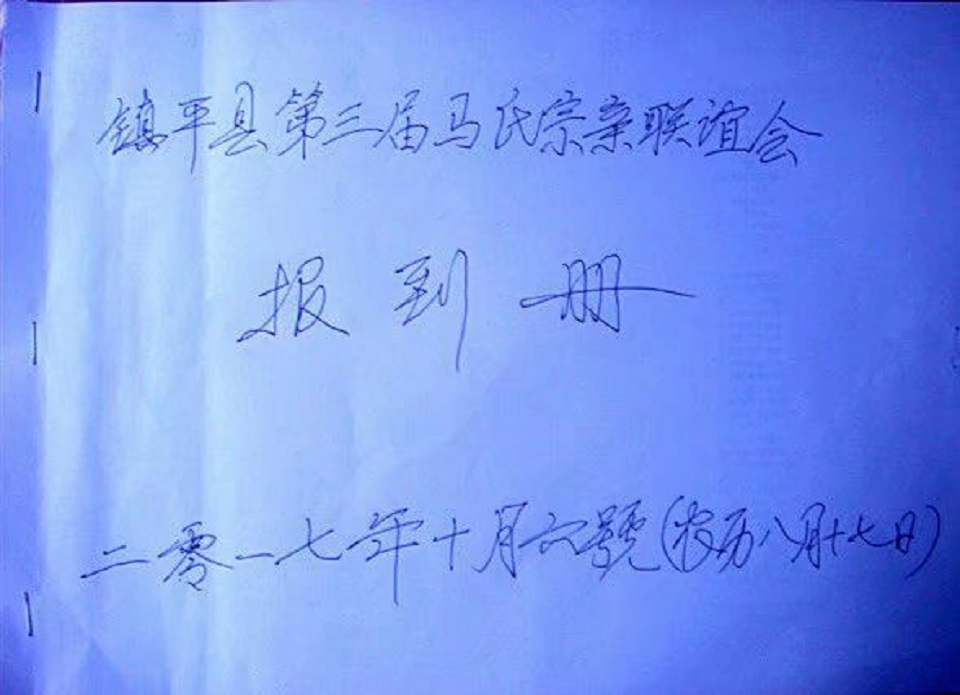 镇平县第三届马氏宗亲联谊会
报到册
二零一七年十月六號(农历八月十七日)